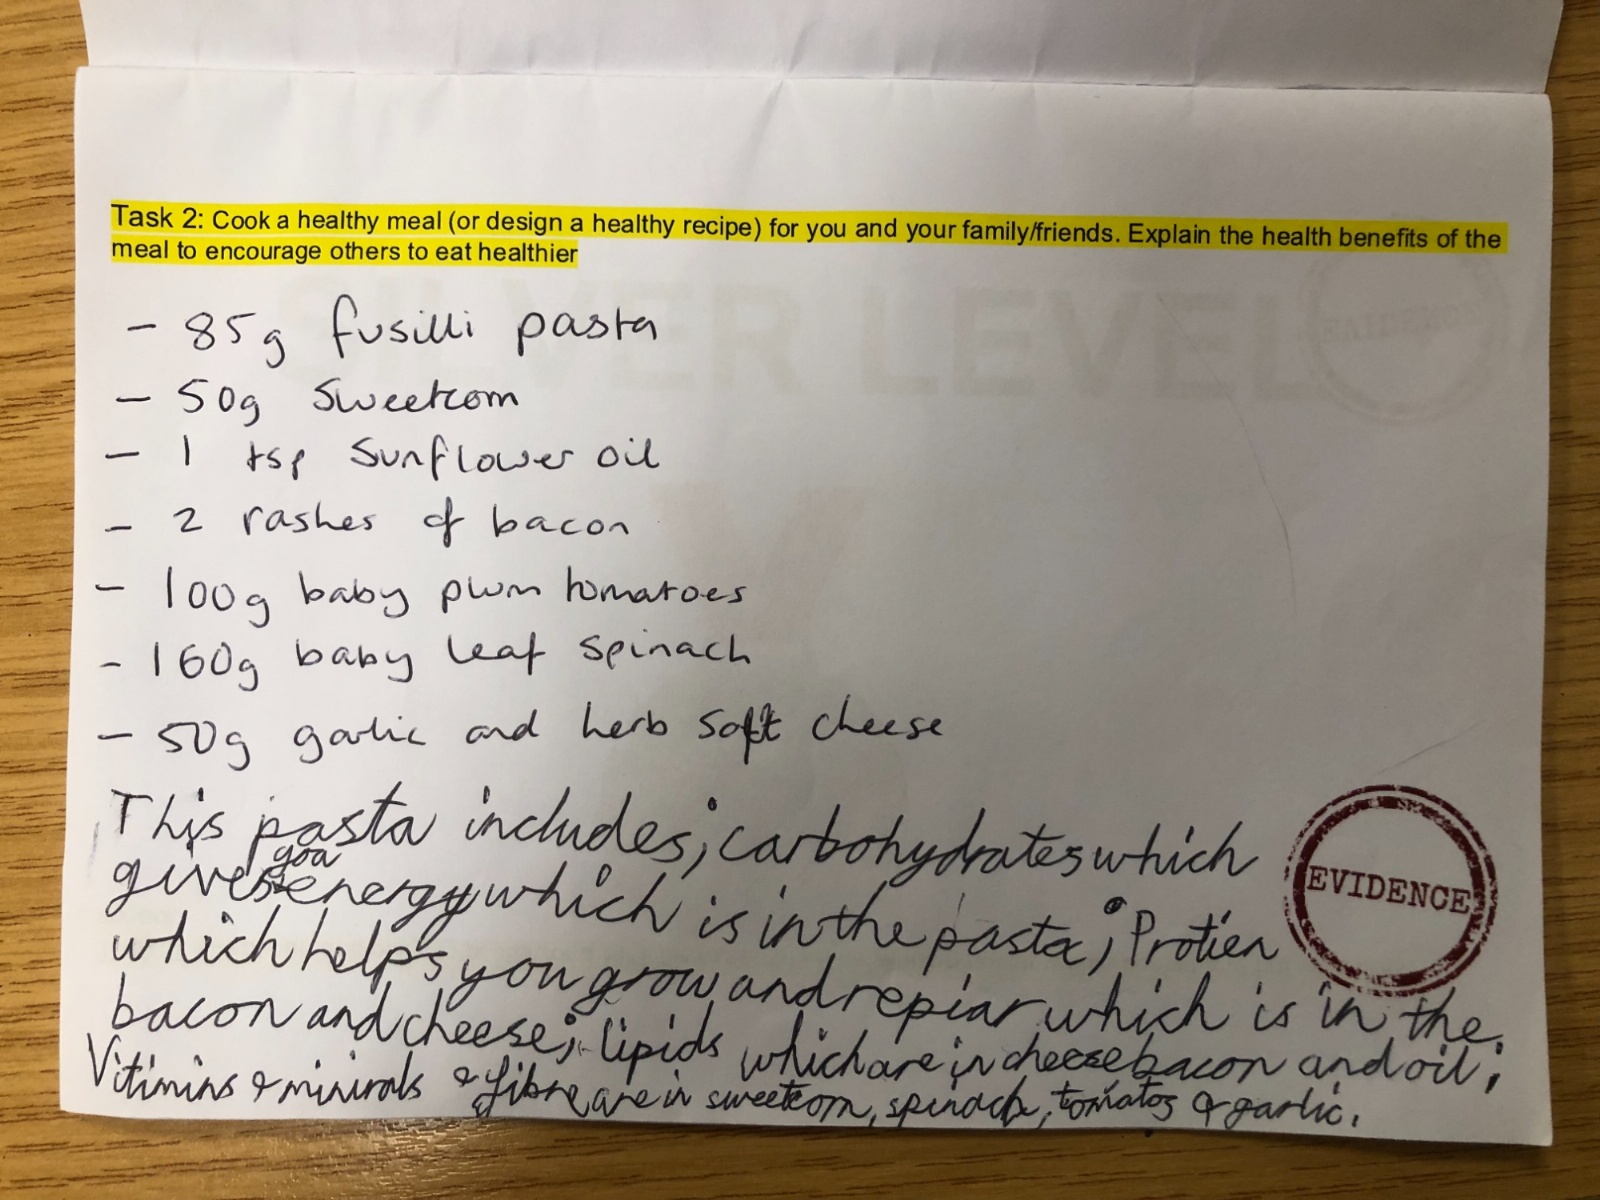 Task 2: Cook a healthy meal (or design a healthy recipe) for you and your family/friends. Explain the health benefits of the
meal to encourage others to eat healthier
SILVER LEVEL
EVIDENCE
- 85g fusilli pasta
- 50g Sweetcorn
- 1 tsp Sunflower oil
- 2 rashes of bacon
- 100g baby plum tomatoes
- 160g baby leaf spinach
- 50g garlic and herb soft cheese
This pasta includes; carbohydrates which
gives you energy which is in the pasta; Protien
which helps you grow and repiar which is in the
bacon and cheese; lipids which are in cheese bacon and oil;
Vitimins & minirals & fibre are in sweetcorn, spinach, tomatos & garlic.
EVIDENCE